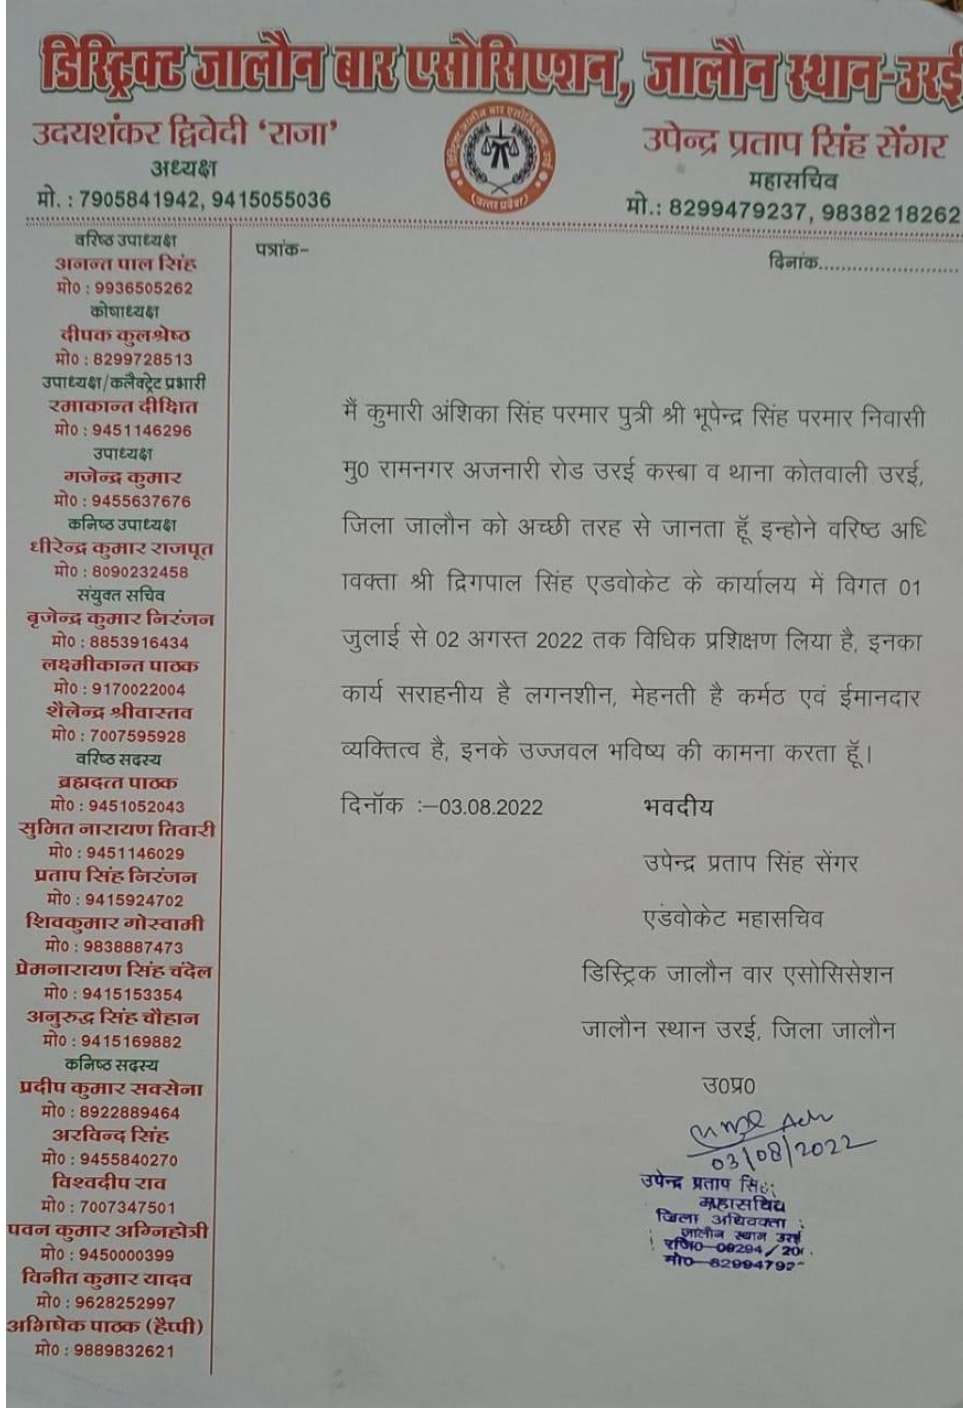 डिस्ट्रिक्ट जालौन बार एसोसिएशन, जालौन स्थान-उरई
उदयशंकर द्विवेदी ‘राजा’
अध्यक्ष
मो. : 7905841942, 9415055036
डिस्ट्रिक्ट जालौन बार एसोसिएशन, उरई
(उत्तर प्रदेश)
उपेन्द्र प्रताप सिंह सेंगर
महासचिव
मो.: 8299479237, 9838218262
वरिष्ठ उपाध्यक्ष
अनन्त पाल सिंह
मो0 : 9936505262
कोषाध्यक्ष
दीपक कुलश्रेष्ठ
मो0 : 8299728513
उपाध्यक्ष/कलैक्ट्रेट प्रभारी
रमाकान्त दीक्षित
मो0 : 9451146296
उपाध्यक्ष
गजेन्द्र कुमार
मो0 : 9455637676
कनिष्ठ उपाध्यक्ष
धीरेन्द्र कुमार राजपूत
मो0 : 8090232458
संयुक्त सचिव
बृजेन्द्र कुमार निरंजन
मो0 : 8853916434
लक्ष्मीकान्त पाठक
मो0 : 9170022004
शैलेन्द्र श्रीवास्तव
मो0 : 7007595928
वरिष्ठ सदस्य
ब्रह्मदत्त पाठक
मो0 : 9451052043
सुमित नारायण तिवारी
मो0 : 9451146029
प्रताप सिंह निरंजन
मो0 : 9415924702
शिवकुमार गोस्वामी
मो0 : 9838887473
प्रेमनारायण सिंह चंदेल
मो0 : 9415153354
अनुरुद्ध सिंह चौहान
मो0 : 9415169882
कनिष्ठ सदस्य
प्रदीप कुमार सक्सेना
मो0 : 8922889464
अरविन्द सिंह
मो0 : 9455840270
विश्वदीप राव
मो0 : 7007347501
पवन कुमार अग्निहोत्री
मो0 : 9450000399
विनीत कुमार यादव
मो0 : 9628252997
अभिषेक पाठक (हैप्पी)
मो0 : 9889832621
पत्रांक–
दिनांक........................
मैं कुमारी अंशिका सिंह परमार पुत्री श्री भूपेन्द्र सिंह परमार निवासी
मु0 रामनगर अजनारी रोड उरई कस्बा व थाना कोतवाली उरई,
जिला जालौन को अच्छी तरह से जानता हूॅ इन्होने वरिष्ठ अधि
ावक्ता श्री द्रिगपाल सिंह एडवोकेट के कार्यालय में विगत 01
जुलाई से 02 अगस्त 2022 तक विधिक प्रशिक्षण लिया है, इनका
कार्य सराहनीय है लगनशीन, मेहनती है कर्मठ एवं ईमानदार
व्यक्तित्व है, इनके उज्जवल भविष्य की कामना करता हूॅ।
दिनॉक :–03.08.2022 भवदीय
उपेन्द्र प्रताप सिंह सेंगर
एडंवोकेट महासचिव
डिस्ट्रिक जालौन वार एसोसिसेशन
जालौन स्थान उरई, जिला जालौन
उ0प्र0
03/08/2022
उपेन्द्र प्रताप सिंह
महासचिव
जिला अधिवक्ता
जालौन स्थान उरई
रजि0–09294/20
मो0–82994792